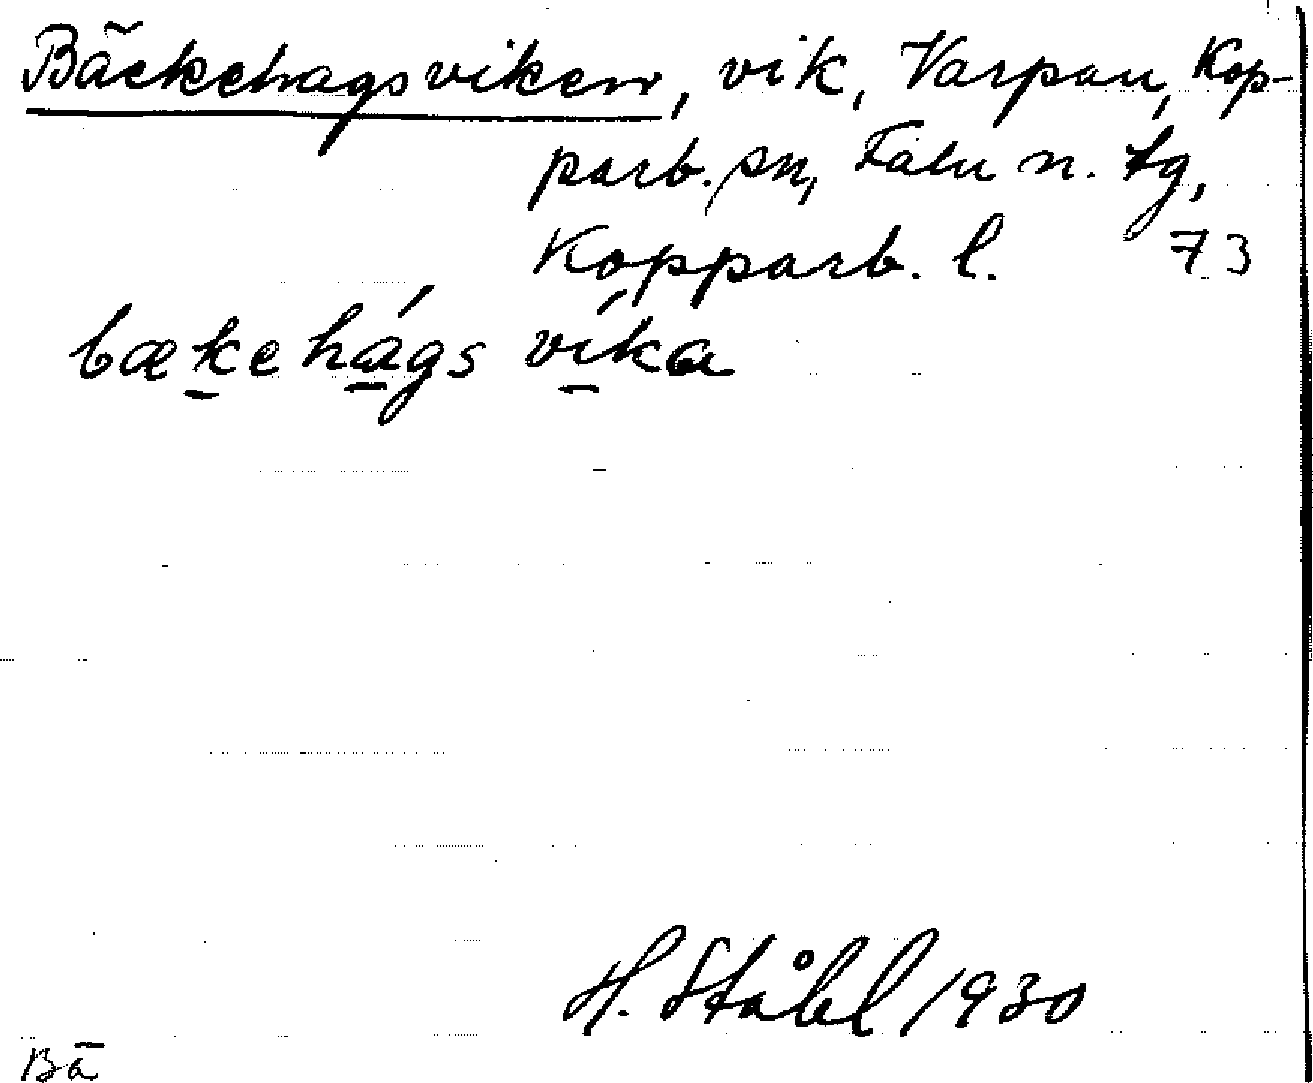 Bäckehagsviken, vik, Varpan, Kop-
parb. sn, Falu n. tg,
Kopparb. l. 73
bækehágs víka
H. Ståhl 1930
Bä